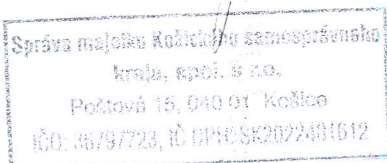 Správa majetku Košického samosprávneho
kraja, spol. s r.o.
Poštová 15, 040 01 Košice
IČO: 36797723, IČ DPH: SK2022401612